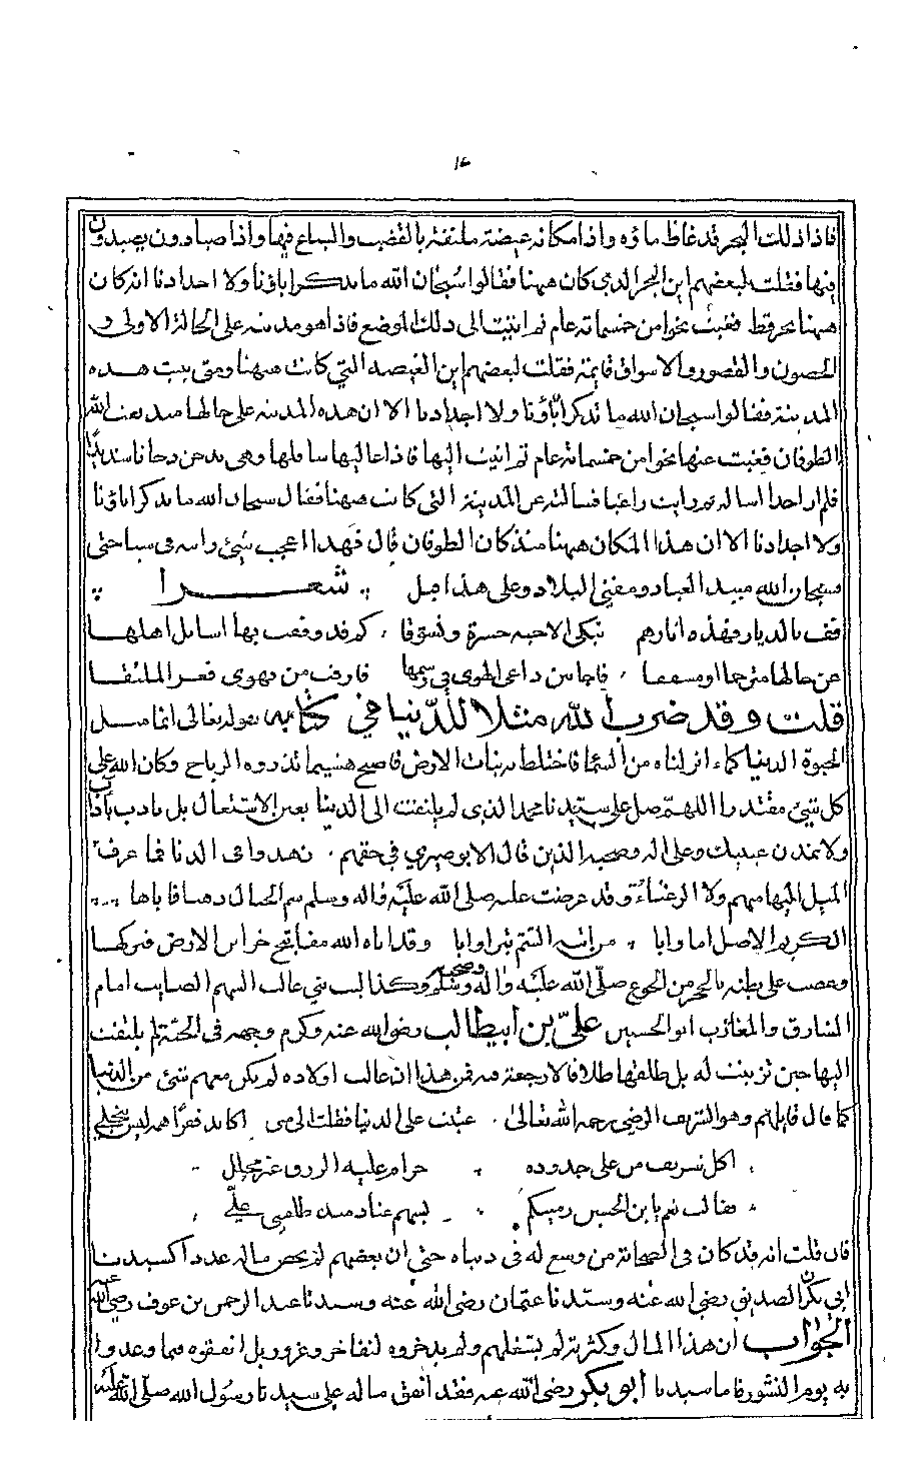 ١٤
فاذا ذلك البحر قد غاظ ماؤه واذا مكانه غيضة ملتفة بالقضب والسباع فيها واذا صيادون يصيدون
فيها فقلت لبعضهم اين البحر الذي كان ههنا فقالوا سبحان الله ما يذكر اباؤنا ولا اجدادنا انه كان
ههنا بحر قط فغبت نحوا من خمسمائة عام ثم اتيت الى ذلك الموضع فاذا هو مدينة على الحالة الاولى و
الحصون والقصور والاسواق قايمة فقلت لبعضهم اين الغيضه التي كانت ههنا ومتى بنيت هذه
المدينة فقالوا سبحان الله ما تذكر اباؤنا ولا اجدادنا الا ان هذه المدينه على حالها منذ بعث الله
الطوفان فغبت عنها نحوا من خمسمائة عام ثم اتيت اليها فاذا عاليها سافلها وهي تدخن دخانا شديدا
فلم ار احدا اساله ثم رايت راعيا فسالته عن المدينة التي كانت ههنا فقال سبحان الله ما يذكر اباؤنا
ولا اجدادنا الا ان هذا المكان ههنا منذ كان الطوفان قال فهذا اعجب شئ رايته في سياحتي
فسبحان الله مبيد العباد ومفني البلاد وعلى هذا قيل شعرا
قف بالديار فهذه اثارهم تبكي الاحبه حسرة وتشوقا كم قد وقفت بها اسايل اهلها
عن حالها مترحما او مشفقا فاجابني داعي الهوى في رسمها فارقت من تهوى فعز الملتقا
قلت وقد ضرب الله مثلا للدنيا في كتابه بقوله تعالى انما مثل
الحيوة الدنيا كماء انزلناه من السماء فاختلط به نبات الارض فاصبح هشيما تذروه الرياح وكان الله على
كل شئ مقتدرا اللهم صل على سيدنا محمد الذي لم يلتفت الى الدنيا بعين الاستعمال بل تادب باداب
ولا تمدن عينيك وعلى اله وصحبه الذين قال الابوصيري في حقهم زهدوا في الدنا فما عرف
الميل اليها منهم ولا الرغباء وقد عرضت عليه صلى الله عليه واله وسلم شم الجبال ذهبا فاباها
الكريم الاصل اما وابا من اتيه الشم تبرا وابا وقد اتاه الله مفاتيح خزاين الارض فتركها
وعصب على بطنه بالحجر من الجوع صلى الله عليه واله وصحبه وسلم وكذا ليث بني غالب السهم الصايب امام
المشارق والمغارب ابو الحسين علي بن ابيطالب رضي الله عنه وكرم وجهه في الجنة لم يلتفت
اليها حين تزينت له بل طلقها طلاقا لا رجعة فيه فمن هذا ان غالب اولاده لم يكن معهم شئ من الدنيا
كما قال قايلهم وهو الشريف الرضي رحمه الله تعالى عتبت على الدنيا فقلت الى متى اكابد فقرا همه ليس ينجلي
اكل شريف من علي جدوده حرام عليه الرزق غير محلل
فقالت نعم يابن الحسين رميتكم بسهم عناد منذ طلقني علي
فان قلت انه قد كان في الصحابة من وسع له في دنياه حتى ان بعضهم لم يحص ماله عددا كسيدنا
ابي بكر الصديق رضي الله عنه وسيدنا عثمان رضي الله عنه وسيدنا عبد الرحمن بن عوف رضي الله عنه
الجواب ان هذا المال وكثرته لم يشغلهم ولم يدخروه لتفاخر وغرور بل انفقوه فيما وعدوا
به يوم النشور فاما سيدنا ابو بكر رضي الله عنه فقد انفق ماله على سيدنا رسول الله صلى الله عليه